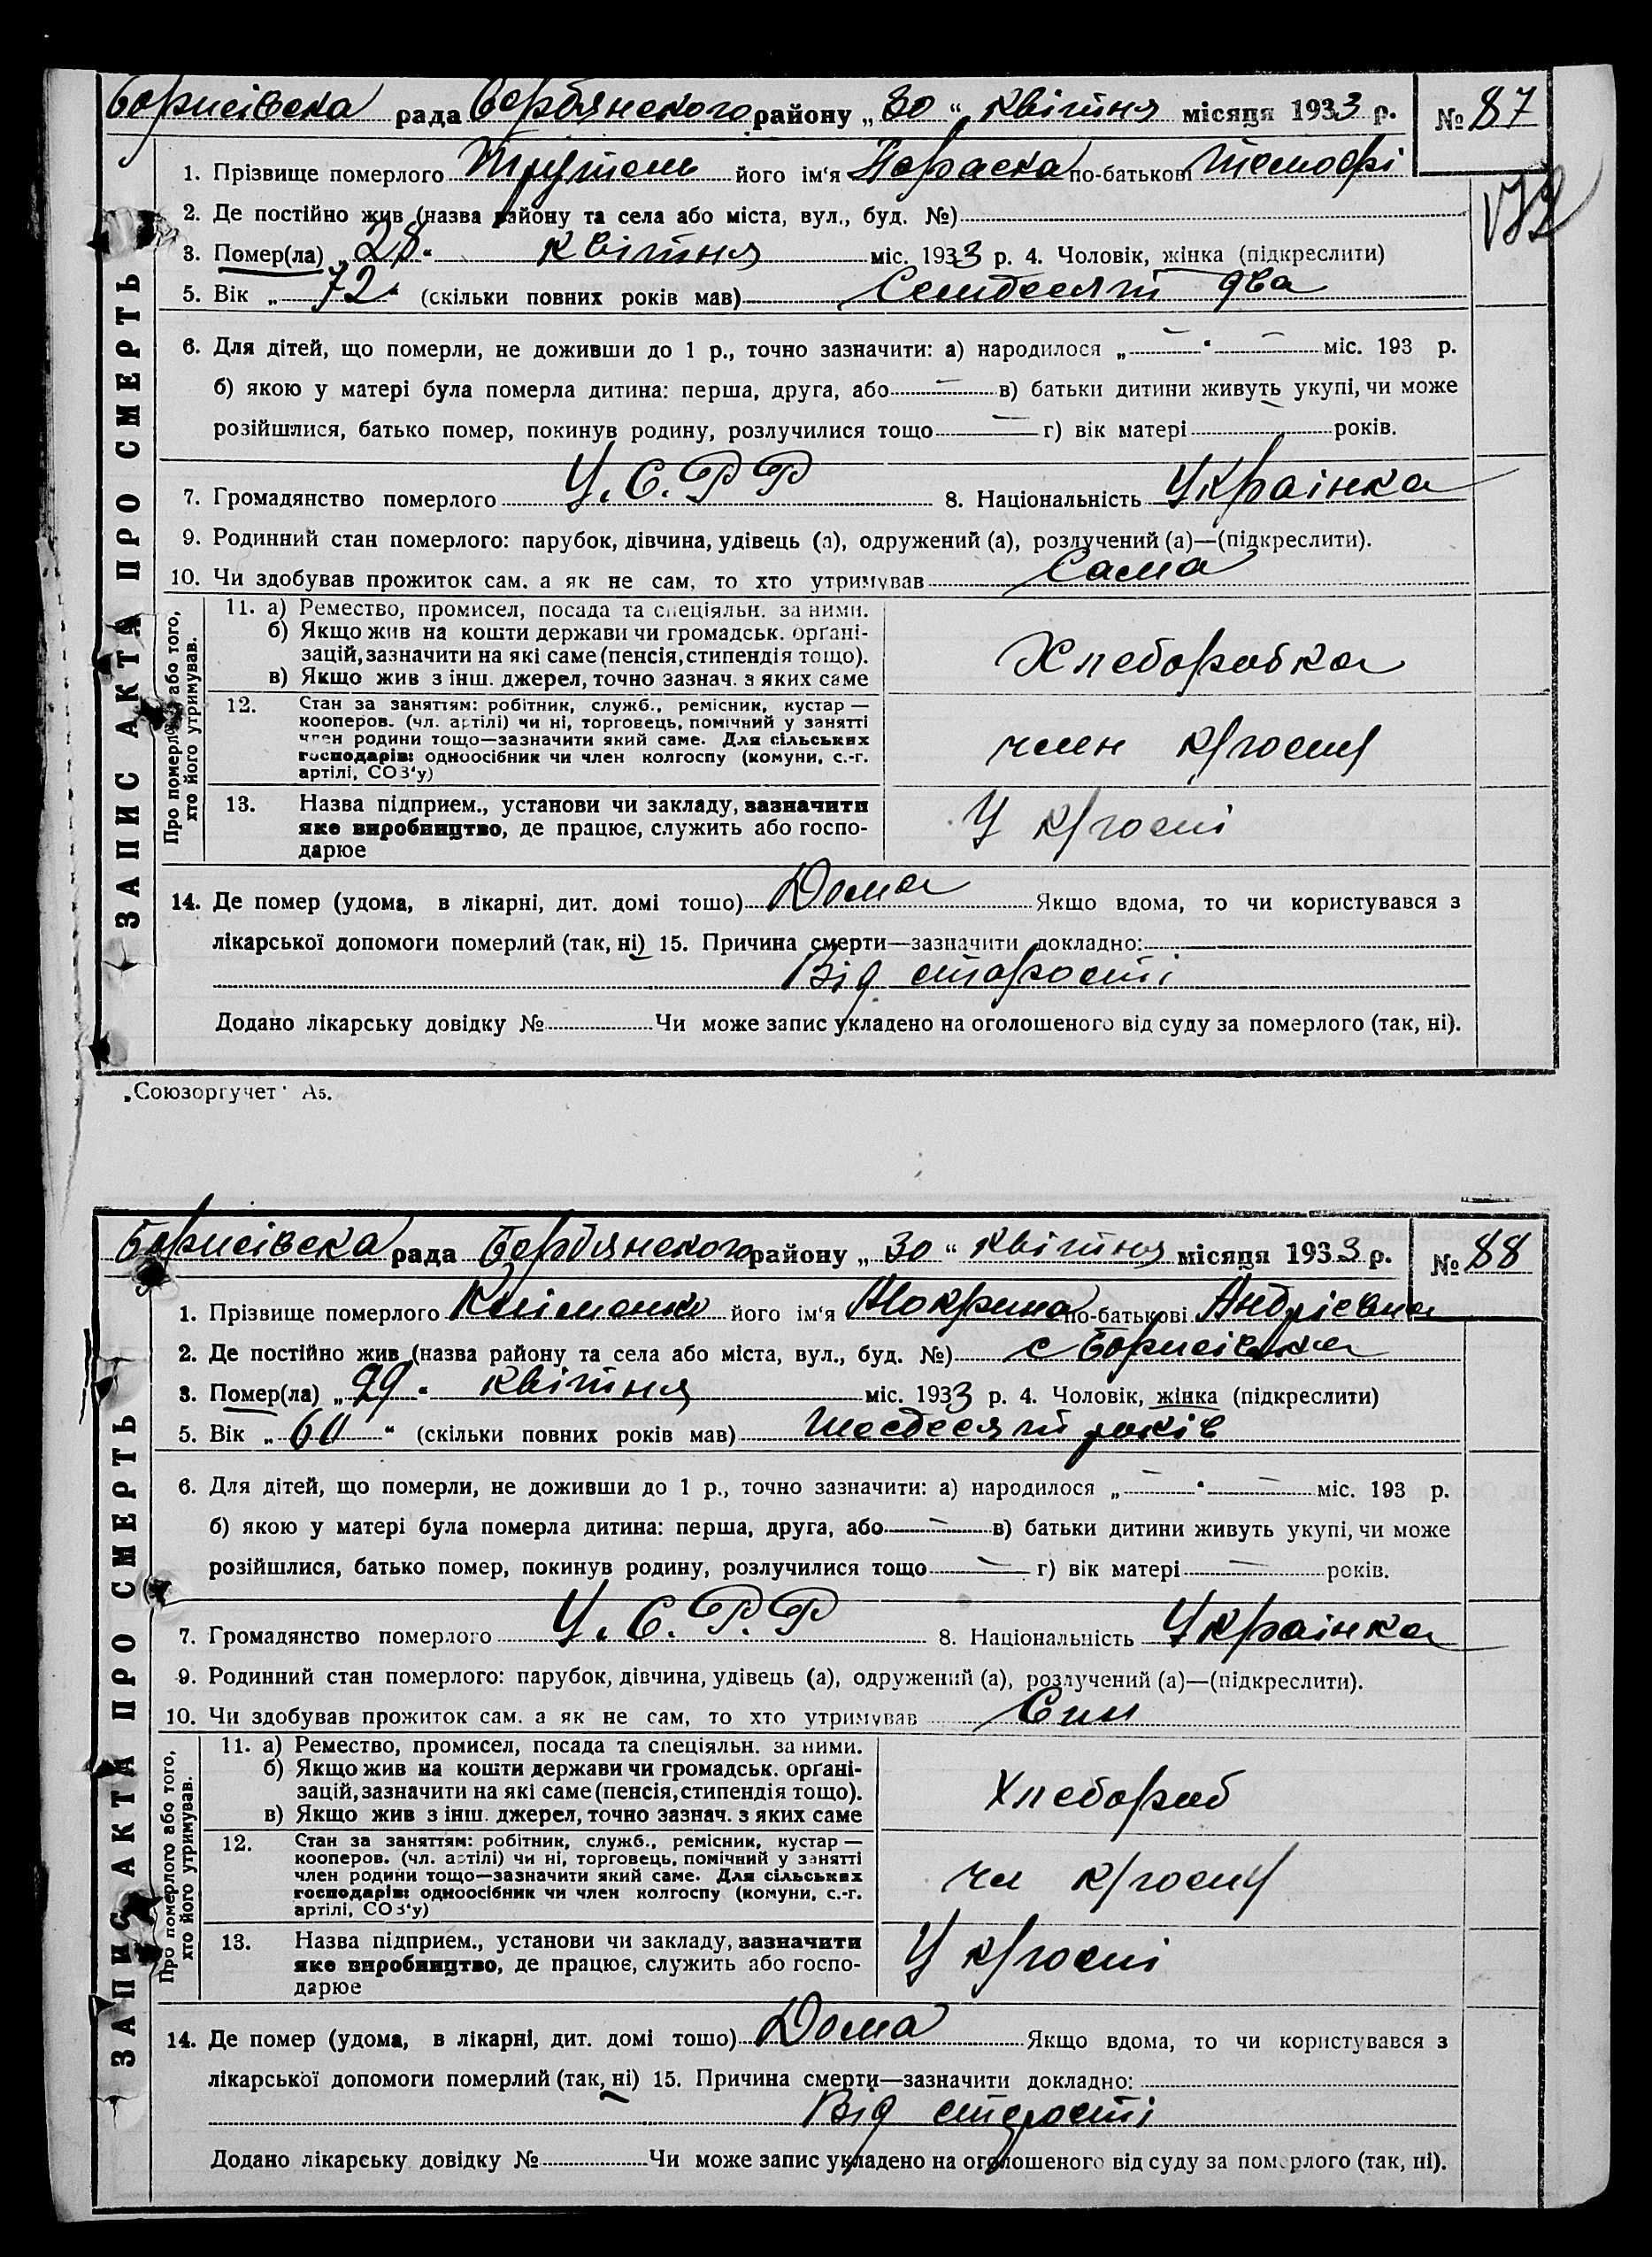 Борисівска рада Бердянского району „30“ квітня місяця 1933 р. № 87
1. Прізвище померлого його ім'я Параска по-батькові Тимофі
2. Де постійно жив (назва району та села або міста, вул., буд. №)
3. Помер(ла) „28“ квітня міс. 1933 р. 4. Чоловік, жінка (підкреслити)
5. Вік „72“ (скільки повних років мав) Семдесят два
6. Для дітей, що померли, не доживши до 1 р., точно зазначити: а) народилося „—“ — міс. 193 р.
б) якою у матері була померла дитина: перша, друга, або — в) батьки дитини живуть укупі, чи може
розійшлися, батько помер, покинув родину, розлучилися тощо — г) вік матері — років.
7. Громадянство померлого У.С.Р.Р 8. Національність Українка
9. Родинний стан померлого: парубок, дівчина, удівець (а), одружений (а), розлучений (а)—(підкреслити).
10. Чи здобував прожиток сам, а як не сам, то хто утримував Сама
Про померлого або того, хто його утримував.
11. а) Ремество, промисел, посада та спеціяльн. за ними.
б) Якщо жив на кошти держави чи громадськ. орґані-
зацій, зазначити на які саме (пенсія, стипендія тощо).
в) Якщо жив з інш. джерел, точно зазнач. з яких саме
Хлеборобка
12. Стан за заняттям: робітник, служб., ремісник, кустар —
кооперов. (чл. артілі) чи ні, торговець, помічний у занятті
член родини тощо—зазначити який саме. Для сільських
господарів: одноосібник чи член колгоспу (комуни, с.-г.
артілі, СОЗ'у)
член к/госпу
13. Назва підприєм., установи чи закладу, зазначити
яке виробництво, де працює, служить або госпо-
дарює
У к/госпі
14. Де помер (удома, в лікарні, дит. домі тошо) Дома Якщо вдома, то чи користувався з
лікарської допомоги померлий (так, ні) 15. Причина смерти—зазначити докладно:
Від старости
Додано лікарську довідку № Чи може запис укладено на оголошеного від суду за померлого (так, ні).
ЗАПИС АКТА ПРО СМЕРТЬ
„Союзоргучет" А5.
Борисівска рада Бердянского району „30“ квітня місяця 1933 р. № 88
1. Прізвище померлого Кліменко його ім'я Мокрина по-батькові Андрієвна
2. Де постійно жив (назва району та села або міста, вул., буд. №) с Борисівка
3. Помер(ла) „29“ квітня міс. 1933 р. 4. Чоловік, жінка (підкреслити)
5. Вік „60“ (скільки повних років мав) Шесдесят років
6. Для дітей, що померли, не доживши до 1 р., точно зазначити: а) народилося „—“ — міс. 193 р.
б) якою у матері була померла дитина: перша, друга, або — в) батьки дитини живуть укупі, чи може
розійшлися, батько помер, покинув родину, розлучилися тощо — г) вік матері — років.
7. Громадянство померлого У.С.Р.Р 8. Національність Українка
9. Родинний стан померлого: парубок, дівчина, удівець (а), одружений (а), розлучений (а)—(підкреслити).
10. Чи здобував прожиток сам, а як не сам, то хто утримував Син
Про померлого або того, хто його утримував.
11. а) Ремество, промисел, посада та спеціяльн. за ними.
б) Якщо жив на кошти держави чи громадськ. орґані-
зацій, зазначити на які саме (пенсія, стипендія тощо).
в) Якщо жив з інш. джерел, точно зазнач. з яких саме
Хлебороб
12. Стан за заняттям: робітник, служб., ремісник, кустар —
кооперов. (чл. артілі) чи ні, торговець, помічний у занятті
член родини тощо—зазначити який саме. Для сільських
господарів: одноосібник чи член колгоспу (комуни, с.-г.
артілі, СОЗ'у)
чл к/госпу
13. Назва підприєм., установи чи закладу, зазначити
яке виробництво, де працює, служить або госпо-
дарює
У к/госпі
14. Де помер (удома, в лікарні, дит. домі тошо) Дома Якщо вдома, то чи користувався з
лікарської допомоги померлий (так, ні) 15. Причина смерти—зазначити докладно:
Від старости
Додано лікарську довідку № Чи може запис укладено на оголошеного від суду за померлого (так, ні).
ЗАПИС АКТА ПРО СМЕРТЬ